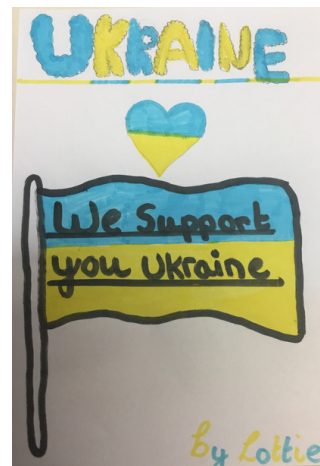 UKRAINE
We Support
you Ukraine
by Lottie